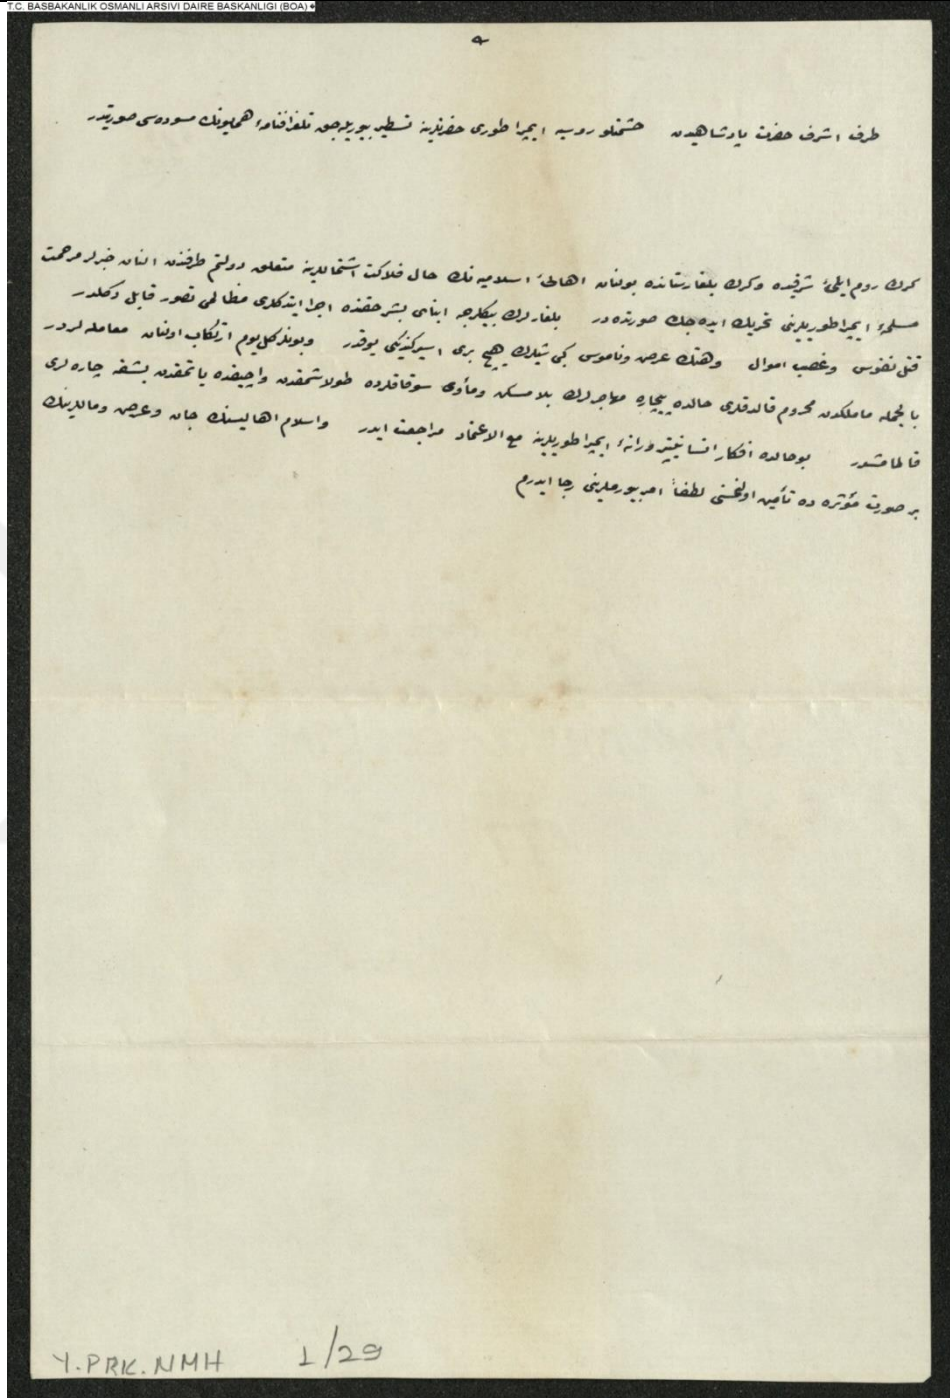 T.C. BASBAKANLIK OSMANLI ARSIVI DAIRE BASKANLIGI (BOA)
طرف اشرف حضرت پادشاهیدن حشمتلو روسیه ایمپراطوری حضرتلرینه تسطیر بیوریله‌جق تلغرافنامهٔ همایونك مسوده‌سی صورتیدر
كرك روم ایلئ شرقیده و كرك بلغارستانده بولنان اهالئ اسلامیه‌نك حال فلاكت اشتماللرینه متعلق دولتم طرفندن النان خبرلر مرحمت
مسلمهٔ ایمپراطوریلرینی تحریك ایده‌جك صورتده‌در بلغارلرك بیكلرجه ابنای بشر حقنده اجرا ایتدكلری مظالمی تصور قابل دكلدر
قتل نفوس و غصب اموال وهتك عرض وناموس كبی شیلرك هیچ بری اسیركنیلمیوقدر وبونلر كل یوم ارتكاب اولنان معامله‌لردر
بالجمله ماملكدن محروم قالدقلری حالده بیچاره مهاجرلرك بلا مسكن ومأوی سوقاقلرده طولاشمقدن واچیقده یاتمقدن بشقه چاره‌لری
قالمامشدر بو حالده افكار انسانیتپرورانهٔ ایمپراطوریلرینه مع الاعتماد مراجعت ایدر واسلام اهالیسنك جان وعرض وماللرینك
بر صورت مؤثره‌ده تأمین اولنمسنی لطفاً امر بیورملرینی رجا ایدرم
Y.PRK.NMH 1/29